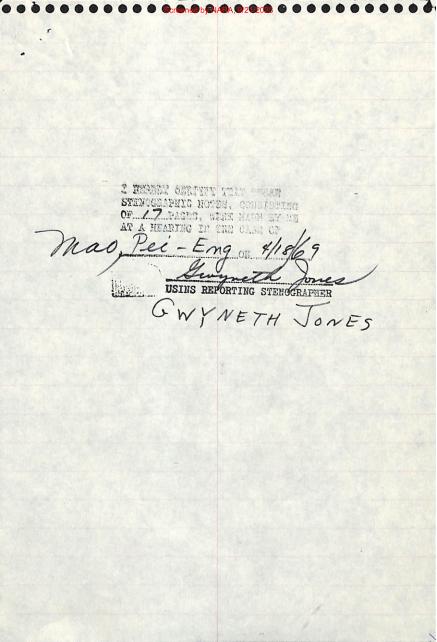 I HEREBY CERTIFY THAT THESE
STENOGRAPHIC NOTES, CONSISTING
OF 17 PAGES, WERE MADE BY ME
AT A HEARING IN THE CASE OF
Mao, Pei-Eng ON 4/18/69
Gwyneth Jones
USINS REPORTING STENOGRAPHER
GWYNETH JONES